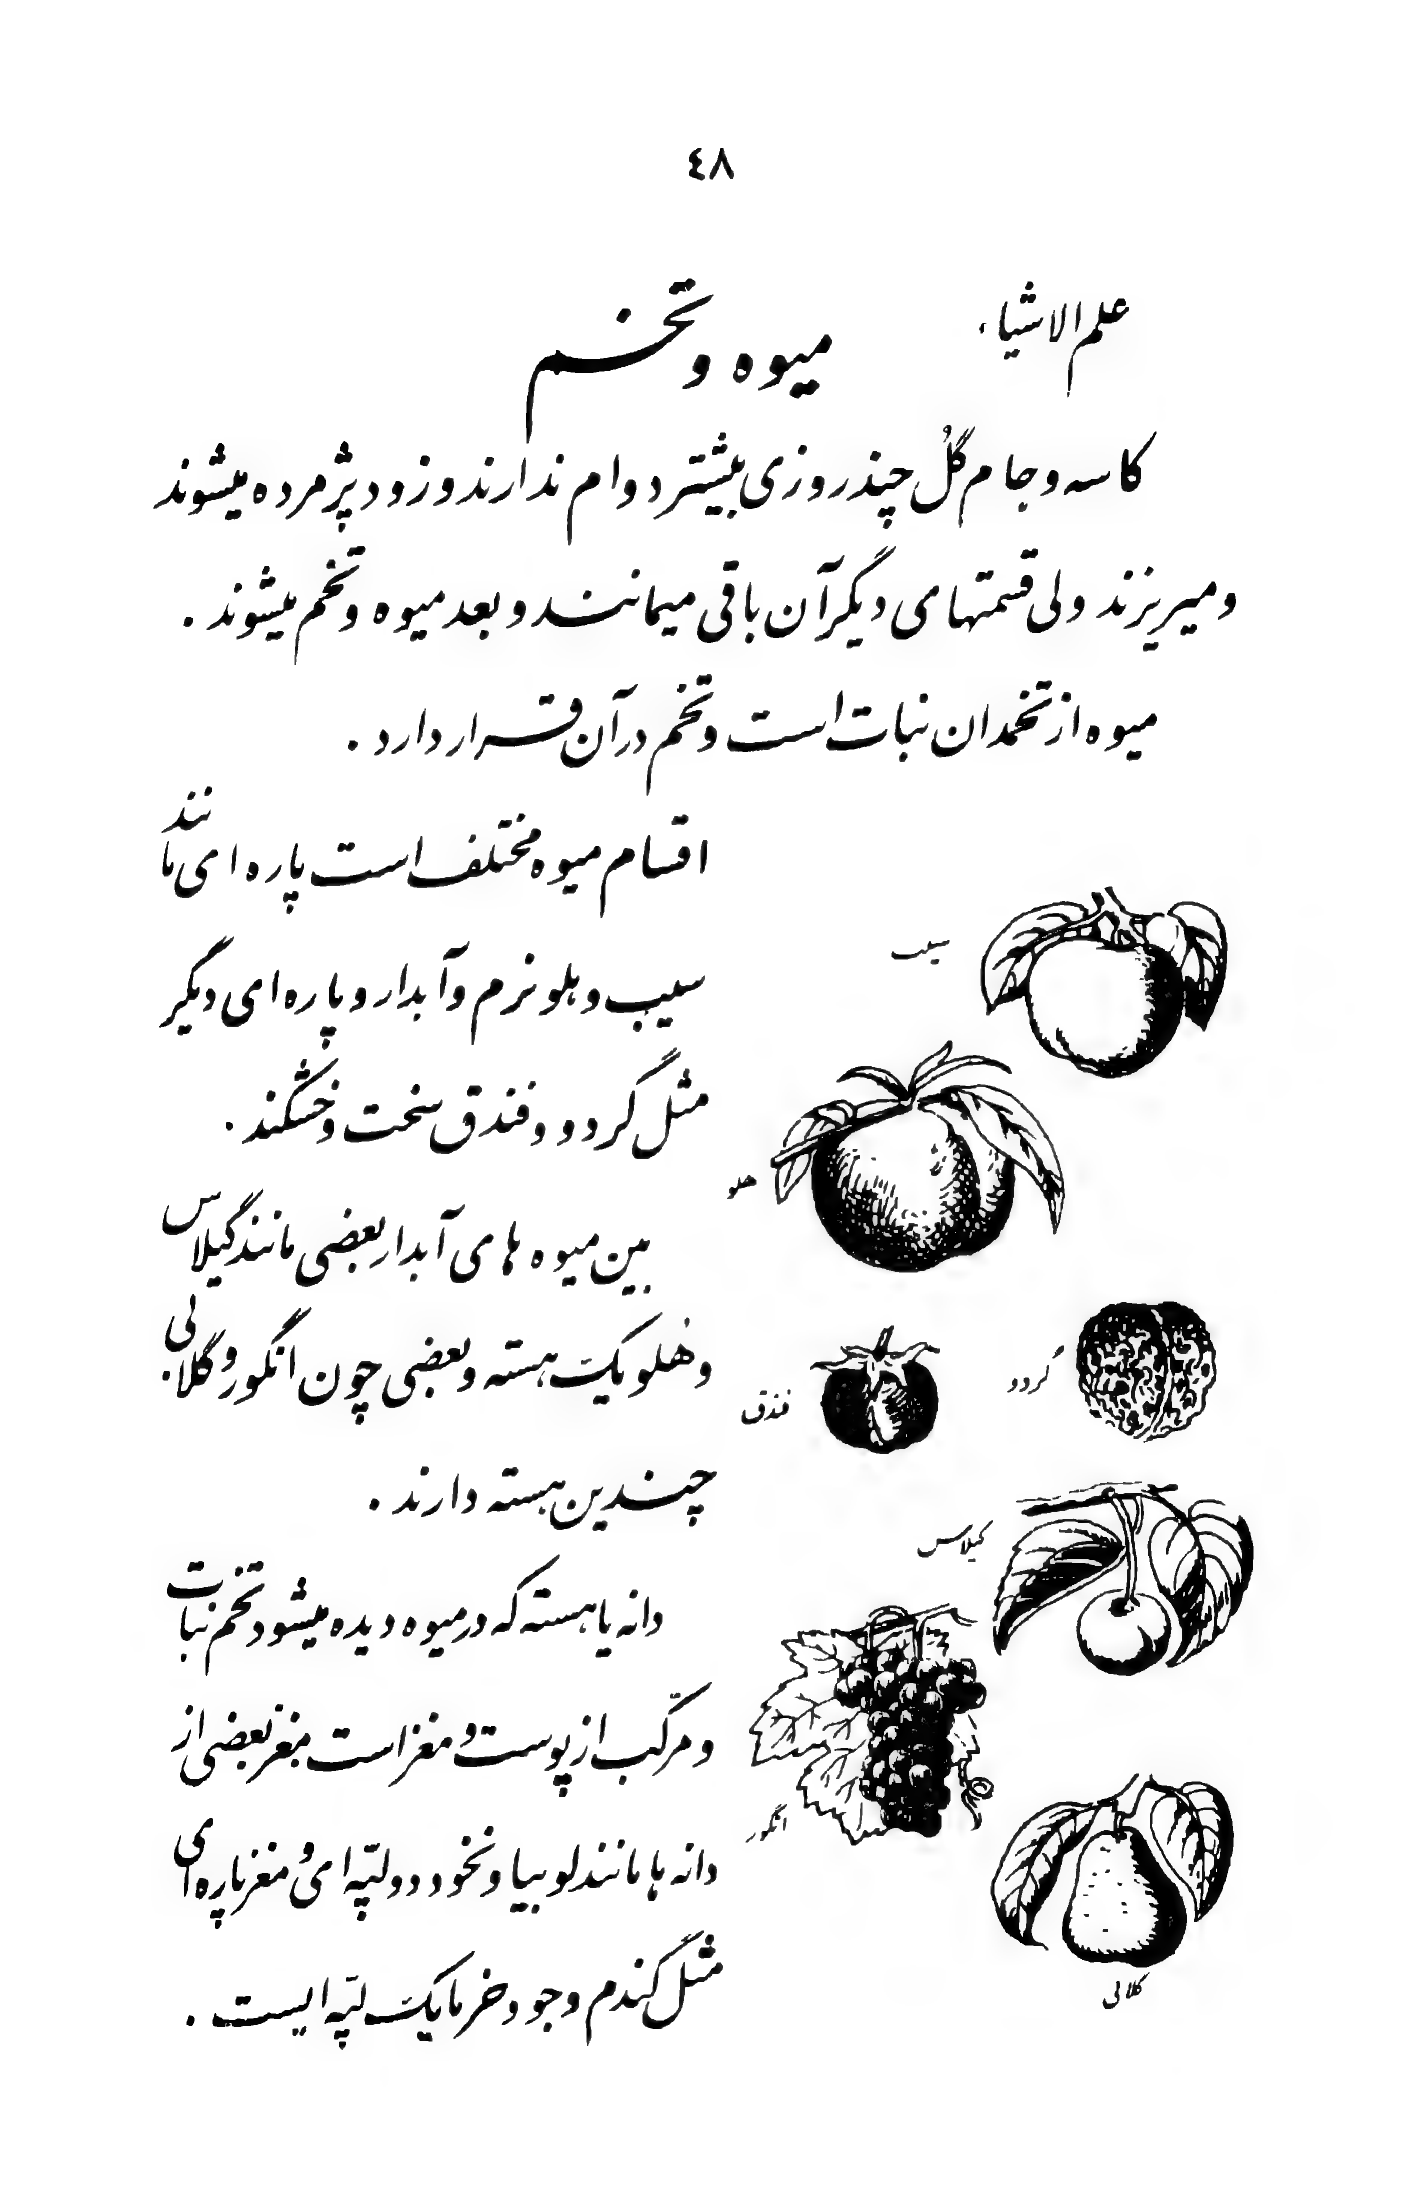 ٤٨
علم الاشیاء
میوه و تخم
کاسه و جام گُل چند روزی بیشتر دوام ندارند و زود پژمرده میشوند
و میریزند ولی قسمتهای دیگر آن باقی میمانند و بعد میوه و تخم میشوند .
میوه از تخمدان نبات است و تخم در آن قرار دارد .
اقسام میوه مختلف است پاره ای مانند
سیب و هلو نرم و آبدار و پاره ای دیگر
مثل گردو و فندق سخت و خشکند .
بین میوه های آبدار بعضی مانند گیلاس
و هُلو یک هسته و بعضی چون انگور و گلابی
چندین هسته دارند .
دانه یا هسته که در میوه دیده میشود تخم نبات
و مرکّب از پوست و مغز است مغز بعضی از
دانه ها مانند لوبیا و نخود دو لپّه ای و مغز پاره ای
مثل گندم و جو و خرما یک لپّه ایست .
سیب
هلو
گردو
فندق
گیلاس
انگور
گلابی